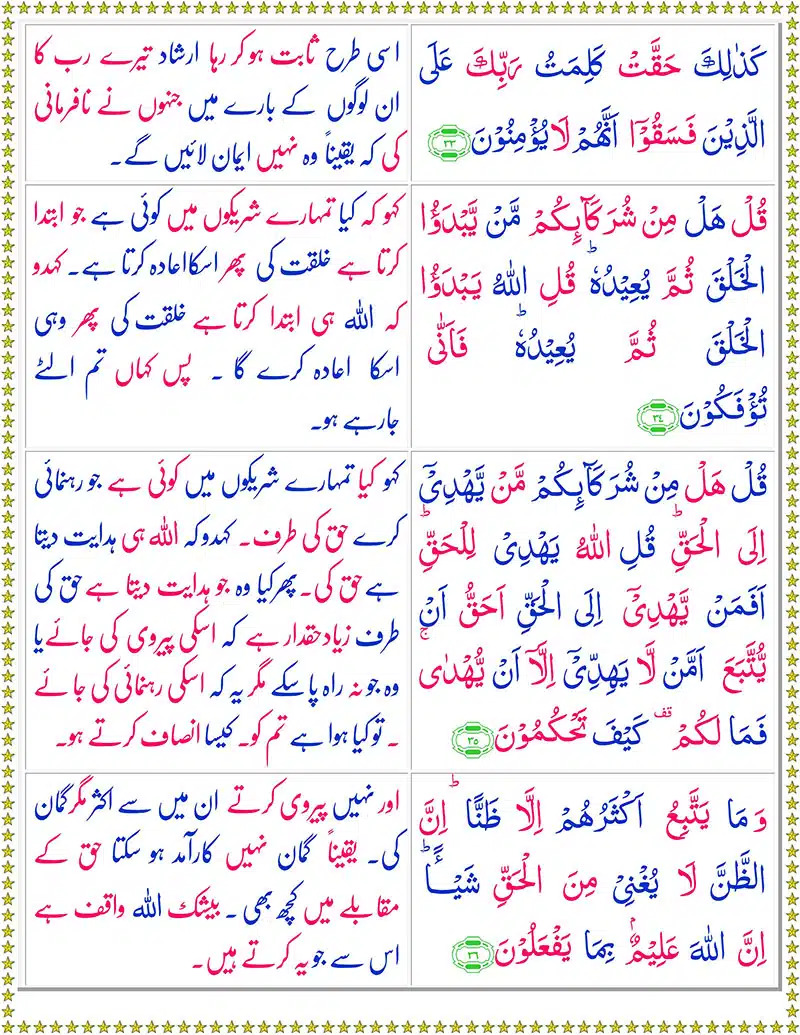 كَذٰلِكَ حَقَّتْ كَلِمَتُ رَبِّكَ عَلَى
الَّذِيْنَ فَسَقُوْۤا اَنَّهُمْ لَا يُؤْمِنُوْنَ ﴿٣٣﴾
اسی طرح ثابت ہوکر رہا ارشاد تیرے رب کا
ان لوگوں کے بارے میں جنہوں نے نافرمانی
کی کہ یقیناً وہ نہیں ایمان لائیں گے۔
قُلْ هَلْ مِنْ شُرَكَآىِٕكُمْ مَّنْ يَّبْدَؤُا
الْخَلْقَ ثُمَّ يُعِيْدُهٗ ؕ قُلِ اللّٰهُ يَبْدَؤُا
الْخَلْقَ ثُمَّ يُعِيْدُهٗ ؕ فَاَنّٰى
تُؤْفَكُوْنَ ﴿٣٤﴾
کہو کہ کیا تمہارے شریکوں میں کوئی ہے جو ابتدا
کرتا ہے خلقت کی پھر اسکااعادہ کرتا ہے۔ کہدو
کہ اللہ ہی ابتدا کرتا ہے خلقت کی پھر وہی
اسکا اعادہ کرے گا ۔ پس کہاں تم الٹے
جارہے ہو۔
قُلْ هَلْ مِنْ شُرَكَآىِٕكُمْ مَّنْ يَّهْدِيْۤ
اِلَى الْحَقِّ ؕ قُلِ اللّٰهُ يَهْدِيْ لِلْحَقِّ ؕ
اَفَمَنْ يَّهْدِيْۤ اِلَى الْحَقِّ اَحَقُّ اَنْ
يُّتَّبَعَ اَمَّنْ لَّا يَهِدِّيْۤ اِلَّاۤ اَنْ يُّهْدٰى ۚ
فَمَا لَكُمْ ۫ كَيْفَ تَحْكُمُوْنَ ﴿٣٥﴾
کہو کیا تمہارے شریکوں میں کوئی ہے جو رہنمائی
کرے حق کی طرف۔ کہدوکہ اللہ ہی ہدایت دیتا
ہے حق کی۔ پھرکیا وہ جو ہدایت دیتا ہے حق کی
طرف زیادحقدار ہے کہ اسکی پیروی کی جائے یا
وہ جو نہ راہ پاسکے مگر یہ کہ اسکی رہنمائی کی جائے
۔ توکیا ہوا ہے تم کو۔ کیسا انصاف کرتے ہو۔
وَ مَا يَتَّبِعُ اَكْثَرُهُمْ اِلَّا ظَنًّا ؕ اِنَّ
الظَّنَّ لَا يُغْنِيْ مِنَ الْحَقِّ شَيْـًٔا ؕ
اِنَّ اللّٰهَ عَلِيْمٌۢ بِمَا يَفْعَلُوْنَ ﴿٣٦﴾
اور نہیں پیروی کرتے ان میں سے اکثر مگر گمان
کی۔ یقیناً گمان نہیں کارآمد ہو سکتا حق کے
مقابلے میں کچھ بھی ۔ بیشک اللہ واقف ہے
اس سے جو یہ کرتے ہیں۔